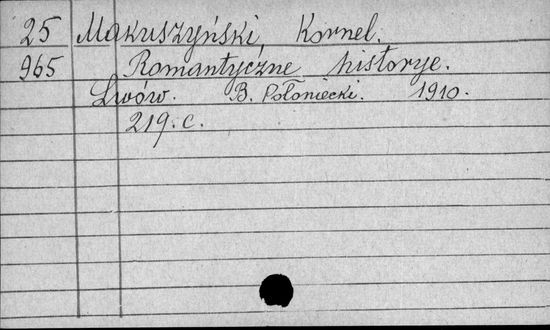 25 Makuszyński, Kornel.
965 Romantyczne historye.
Lwów. B. Połoniecki. 1910.
219. c.